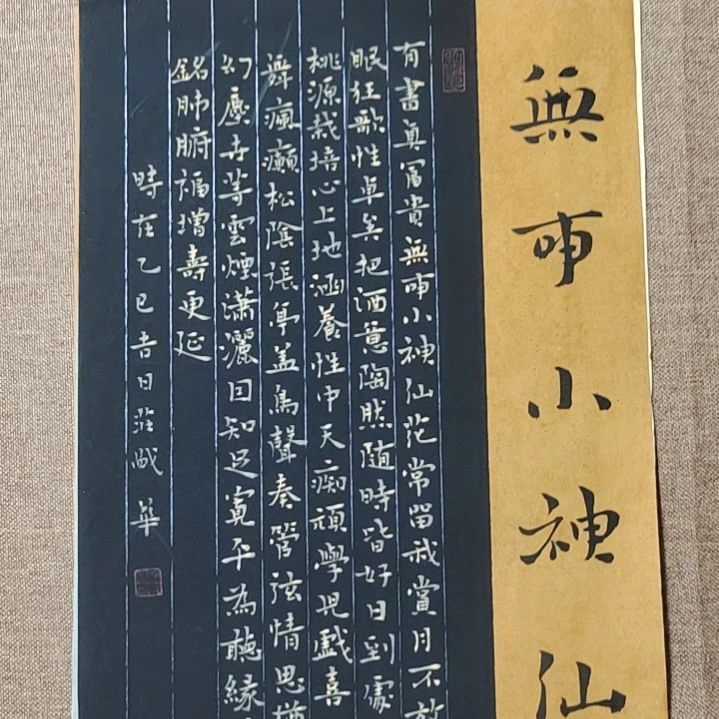 無事小神仙
有書真富貴無事小神仙花常留我賞月不放
眼狂歌性卓矣把酒意陶然随時皆好日到處
桃源栽培心上地涵養性中天痴頑學児戲喜
舞瘋癲松陰張亭蓋鳥聲奏管弦情思
幻塵世等雲煙瀟灑因知足寬平為聽緣
銘肺腑福增壽更延
時在乙巳吉日莊華